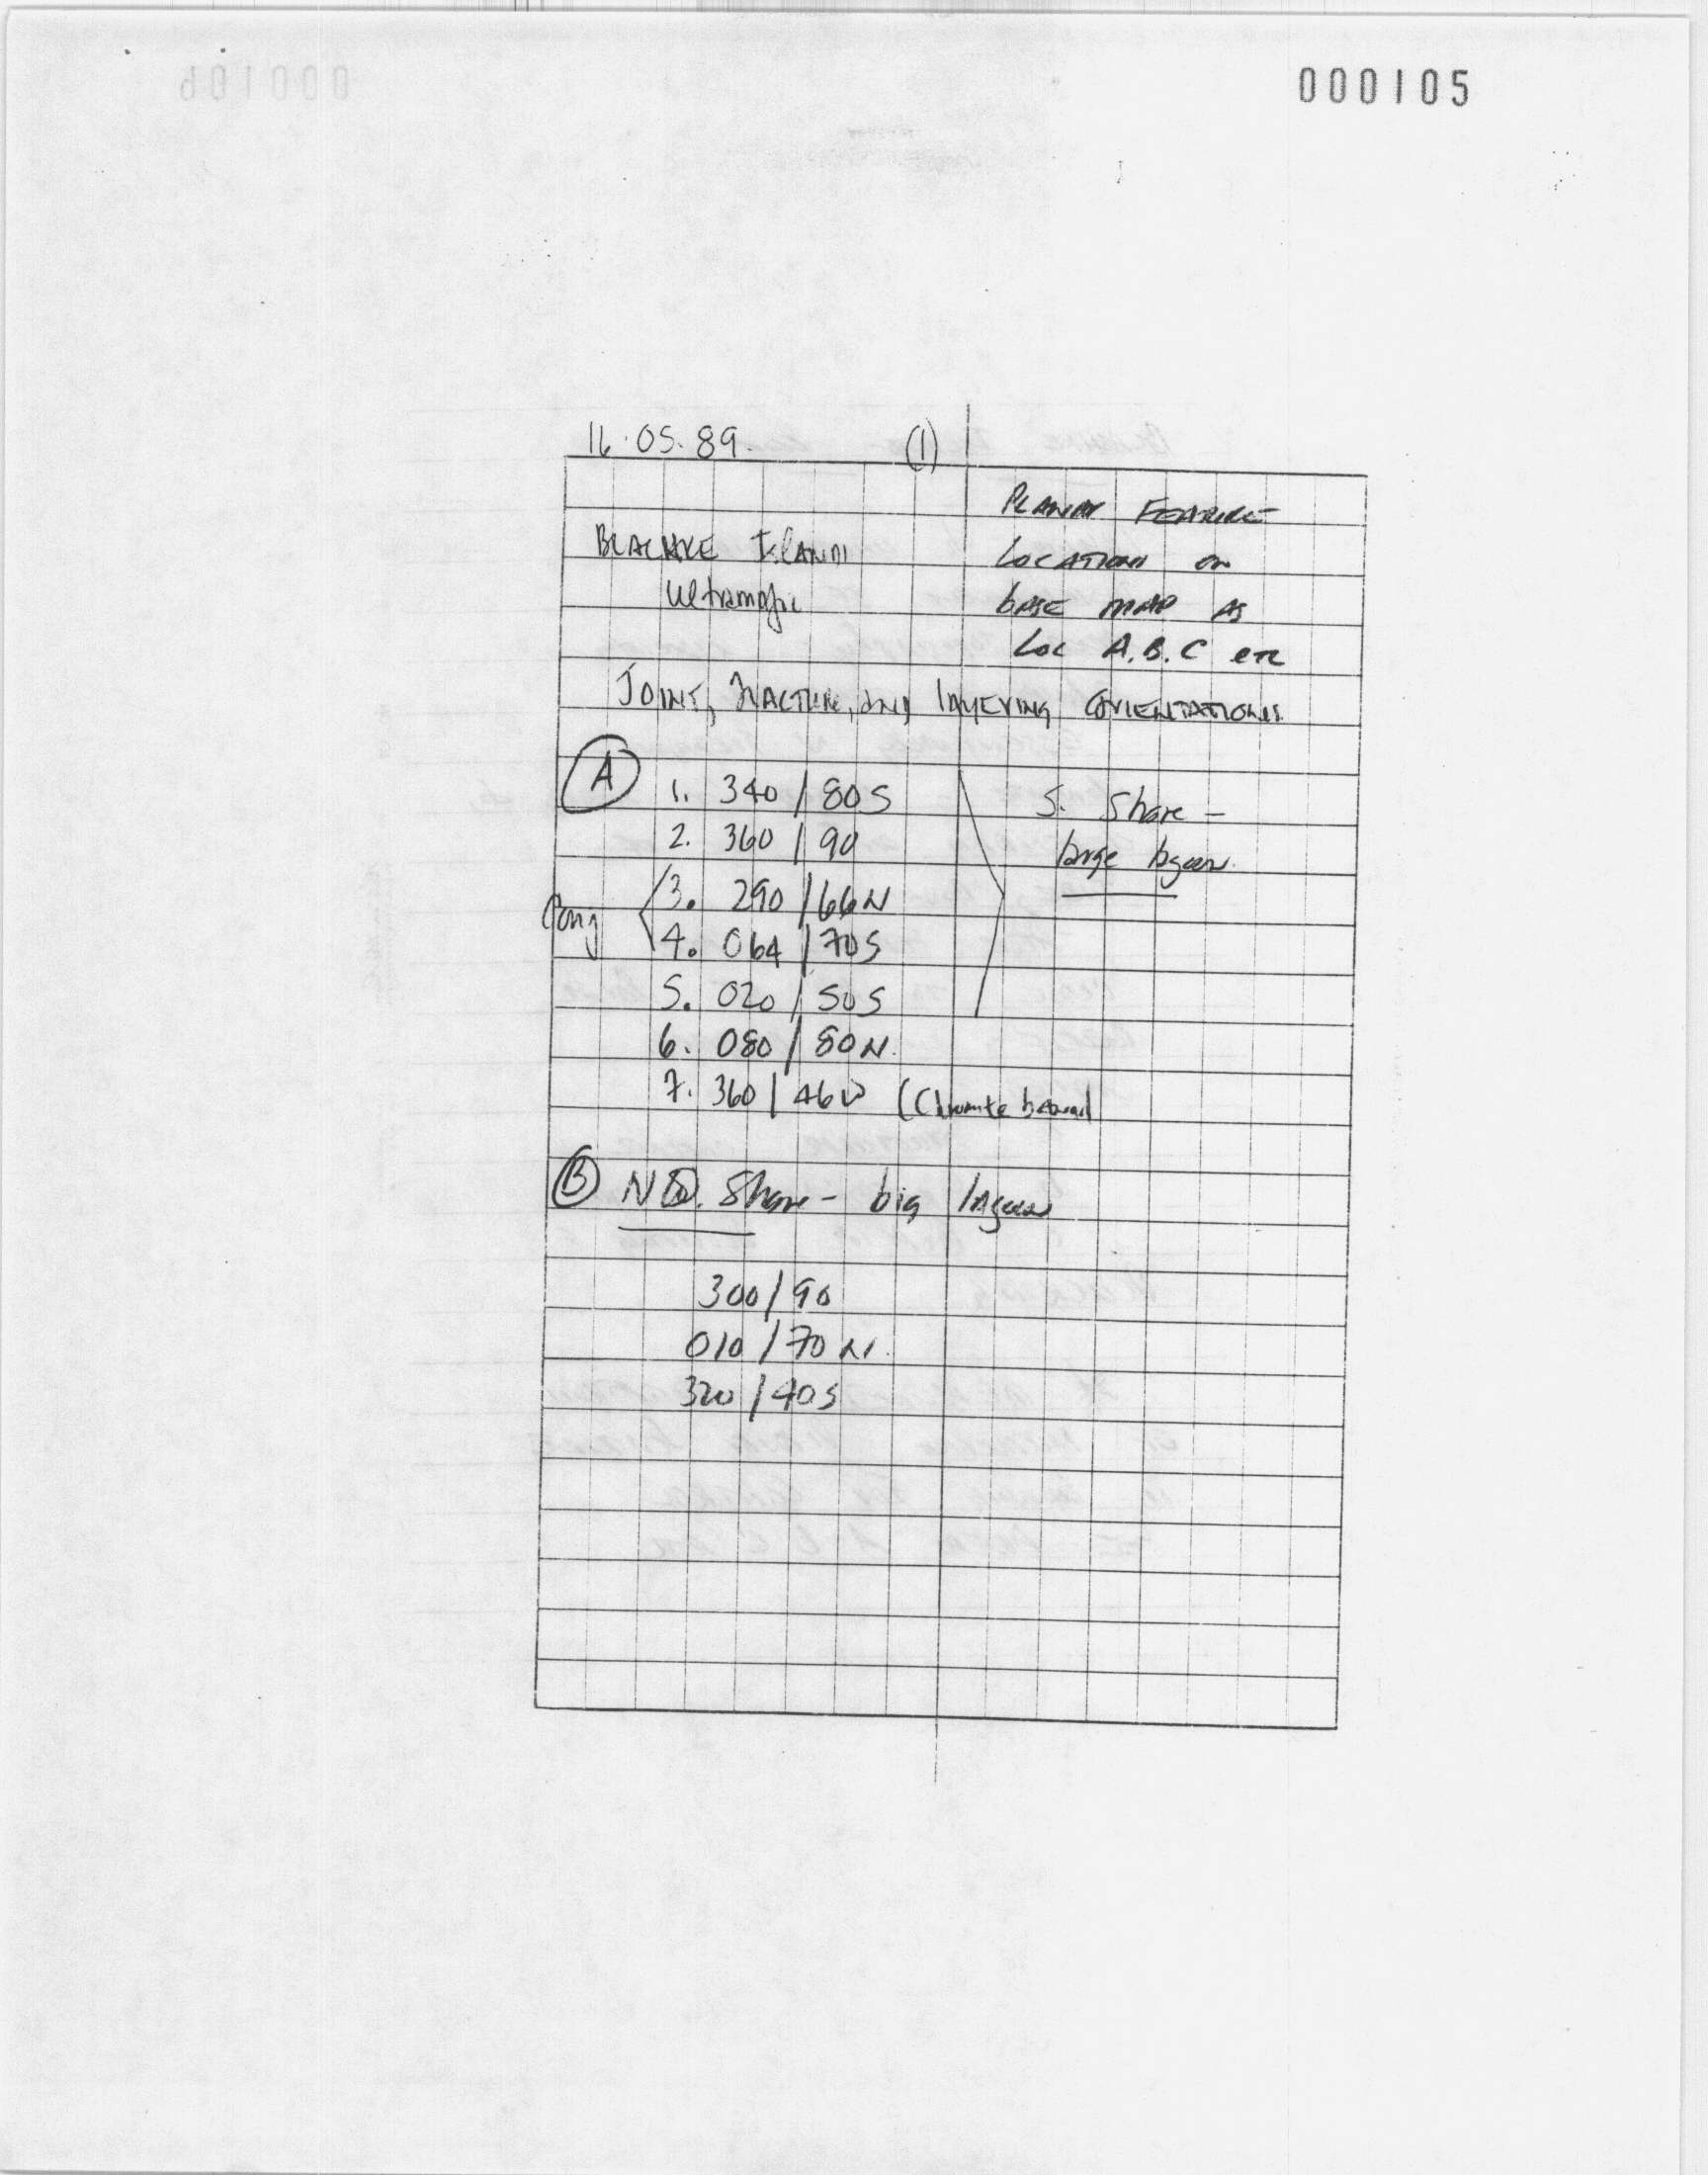 000105
16.05.89. (1)
PLANAR FEATURE
LOCATIONS on
BASE MAP AS
Loc A.B.C etc
Ultramafic
JOINT, FRACTURE, AND LAYERING ORIENTATIONS
A
1. 340/80S
2. 360/90
3. 290/66N
4. 064/70S
5. 020/50S
6. 080/80N.
7. 360/46W (Chromite
Conj
S. Shore -
large lagoon.
B Shore - big lagoon
300/90
010/70N.
320/40S